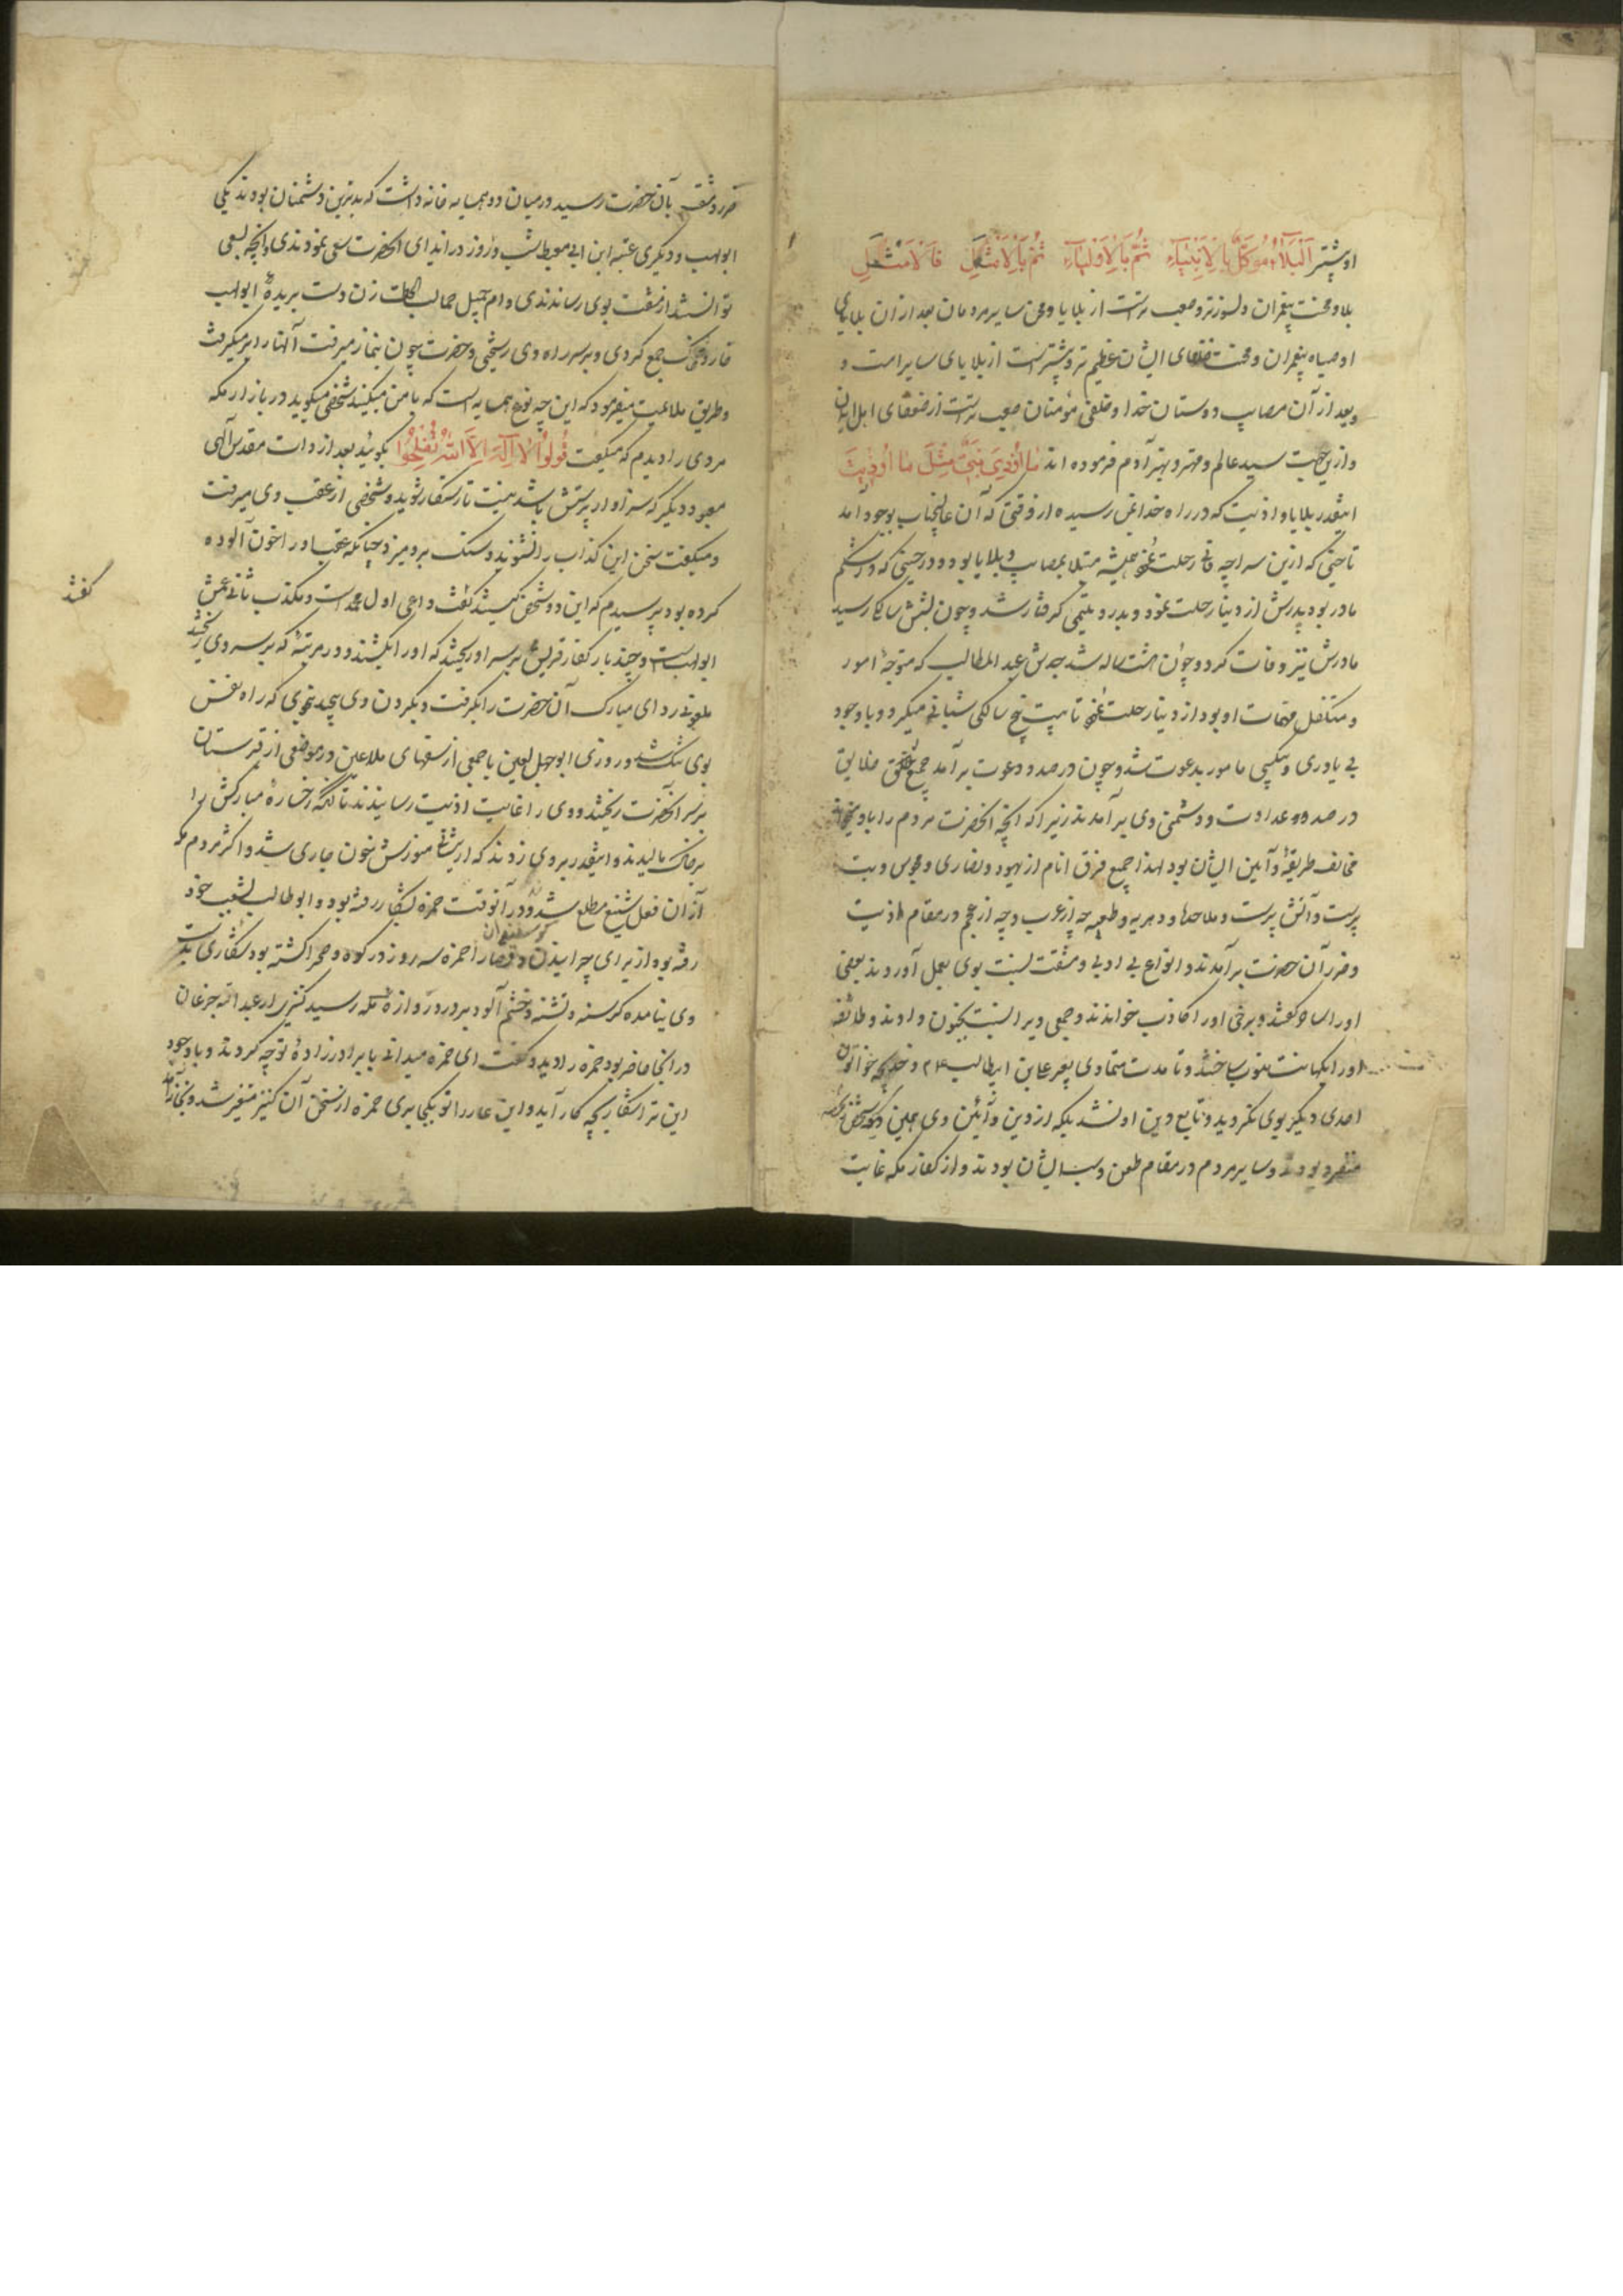 او بیشتر اَلْبَلَاءُ مُوَكَّلٌ بِالْاَنْبِیَآءِ ثُمَّ بِالْاَوْلِیَآءِ ثُمَّ بِالْاَمْثَلِ فَالْاَمْثَلِ
بلا و محنت پیغمبران دلسوزتر و صعب ترست از بلایا و محن سایر مردمان بعد از ان بلایای
اوصیاء پیغمبران و محنت خلفای ایشان عظیم تر و بیشترست از بلایای سایر امت و
و بعد از آن مصایب دوستان خدا و خلص مؤمنان صعب ترست از ضعفای اهل ایمان
و ازین جهت سید عالم و مهتر و بهتر آدم فرموده اند مَا اُوذِیَ نَبِیٌّ مِثْلَ مَا اُوذِیتُ
اینقدر بلایا و اذیت که در راه خدا بمن رسیده از وقتی که آن عالیجناب بوجود آمد
تا حینی که ازین سراچه فانی رحلت نمود همیشه مبتلا بمصایب و بلایا بود و در حینی که در شکم
مادر بود پدرش از دنیا رحلت نمود و بدرد یتیمی گرفتار شد و چون بشش سالگی رسید
مادرش نیز وفات کرد و چون هشت ساله شد جدش عبد المطالب که متوجهٔ امور
و متکفل مهمات او بود از دنیا رحلت نمود تا بیست پنج سالگی شبانی میکرد و با وجود
بی یاوری و بیکسی مامور بدعوت شد و چون در صدد دعوت بر آمد جمیع خلق خلایق
در صدد عداوت و دشمنی وی بر آمدند زیرا که انچه انحضرت مردم را باو میخواند
مخالف طریقهٔ و آیین ایشان بود لهذا جمیع فرق انام از یهود و نصاری و مجوس و بت
پرست و آتش پرست و ملاحده و دهریه و طبیعیه چه از عرب و چه از عجم در مقام اذیت
و ضرر آن حضرت بر آمدند و انواع بی ادبی و مشقت نسبت بوی بعمل آوردند بعضی
اورا ساحر گفتند و برخی اورا کاذب خواندند و جمعی ویرا نسبت بجنون دادند و طائفه
اورا بکهانت منسوب ساختند و تا مدت متمادی بغیر علی بن ابیطالب ۲۴ و خدیجه خواتون
احدی دیگر بوی نگروید و تابع دین او نشد بلکه از دین و آیین وی همین دو سه شخص
متفرد بودند و سایر مردم در مقام طعن و سب ایشان بودند و از کفار مکه غایت
ضرر و مشقت بآن حضرت رسید در میان دو همسایه خانه داشت که بدترین دشمنان بودند یکی
ابولهب و دیگری عتبه ابن ابی معیط شب و روز در ایذای انحضرت سعی نمودندی و انچه بسعی
توانستند از مشقت بوی رساندندی و ام جمیل حمالت الحطب زن دست بریدهٔ ابولهب
خار و خسک جمع کردی و بر سر راه وی ریختی و حضرت چون بنماز میرفت آنها را برمیگرفت
و بطریق ملاعبت میفرمود که این چه نوع همسایه است که با من میکنید شخصی میگوید در بازار مکه
مردی را دیدم که میگفت قُولُوا لَا اِلٰهَ اِلَّا اللهُ تُفْلِحُوا بگوئید بعد از ذات مقدس آلهی
معبود دیگر که سزاوار پرستش باشد نیست تا رستگار شوید و شخصی از عقب وی میرفت
و میگفت سخن این کذاب را نشنوید و سنگ برو میزد چنانکه عقب اورا خون آلوده
کرده بود پرسیدم که این دو شخص کیستند گفتند داعی اول محمدست و مکذب ثانی عمش
گفتند
ابولهب است و چند بار کفار قریش بر سر او ریختند که اورا بکشند و در مرتبهٔ که بر سر وی ریختند
ملعونی ردای مبارک آن حضرت را بگرفت و بگردن وی پیچید بنحوی که راه نفس
بوی تنگ شد و روزی ابوجهل لعین با جمعی از سفهای ملاعین در موضعی از قبرستان
بر سر انحضرت ریختند و وی را غایت اذیت رسانیدند تا آنکه رخسارهٔ مبارکش را
بر خاک مالیدند و اینقدر بر وی زدند که از بینی منورش خون جاری شد و اکثر مردم مکه
از آن فعل شنیع مطلع شدند و در آنوقت حمزه بشکار رفته بود و ابوطالب بشعب خود
رفته بود از برای چرانیدن گوسفندان و قضا را حمزه سه روز در کوه و صحرا گشته بود شکاری بدست
وی نیامده گرسنه و تشنه و خشم آلود بر در دروازهٔ مکه رسید کنیزی از عبد الله جدعان
در انجا حاضر بود حمزه را دید و گفت ای حمزه میدانی با برادرزادهٔ تو چه کردند و با وجود
این ترا شکار بچه کار آید و این عار را تو بکجا بری حمزه از سخن آن کنیز متغیر شد و بخانه آمد